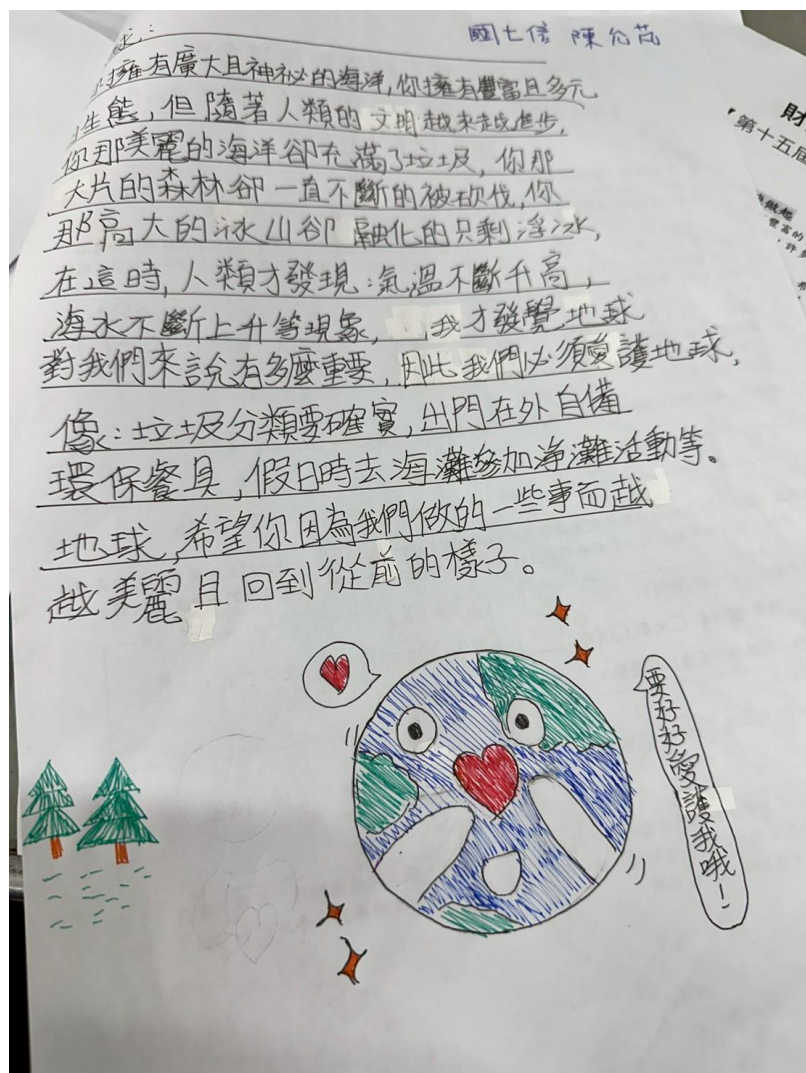 國七信 陳允芃
球：
你擁有廣大且神祕的海洋,你擁有豐富且多元
生態，但隨著人類的文明越來越進步,
你那美麗的海洋卻充滿了垃圾，你那
大片的森林卻一直不斷的被砍伐,你
那高大的冰山卻融化的只剩浮冰,
在這時,人類才發現:氣溫不斷升高，
海水不斷上升等現象, 我才發覺地球
對我們來說有多麼重要，因此我們必須愛護地球,
像:垃圾分類要確實,出門在外自備
環保餐具,假日時去海灘參加淨灘活動等。
地球,希望你因為我們做的一些事而越
越美麗且回到從前的樣子。
要好好愛護我哦！
財
第十五屆
做起
豐富的
，許多